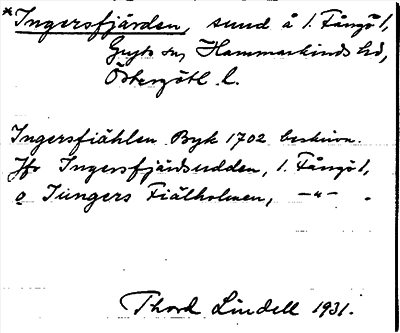 *Ingersfjärden, sund å 1. Fångö 1,
Gryts sn, Hammarkinds hd,
Östergötl. l.
Ingersfiählen Byk 1702 beskrivn.
Jfr Ingersfjärdsudden, 1. Fångö 1,
o Jungers Fiälholmen, —"— .
Thord Lindell 1931.